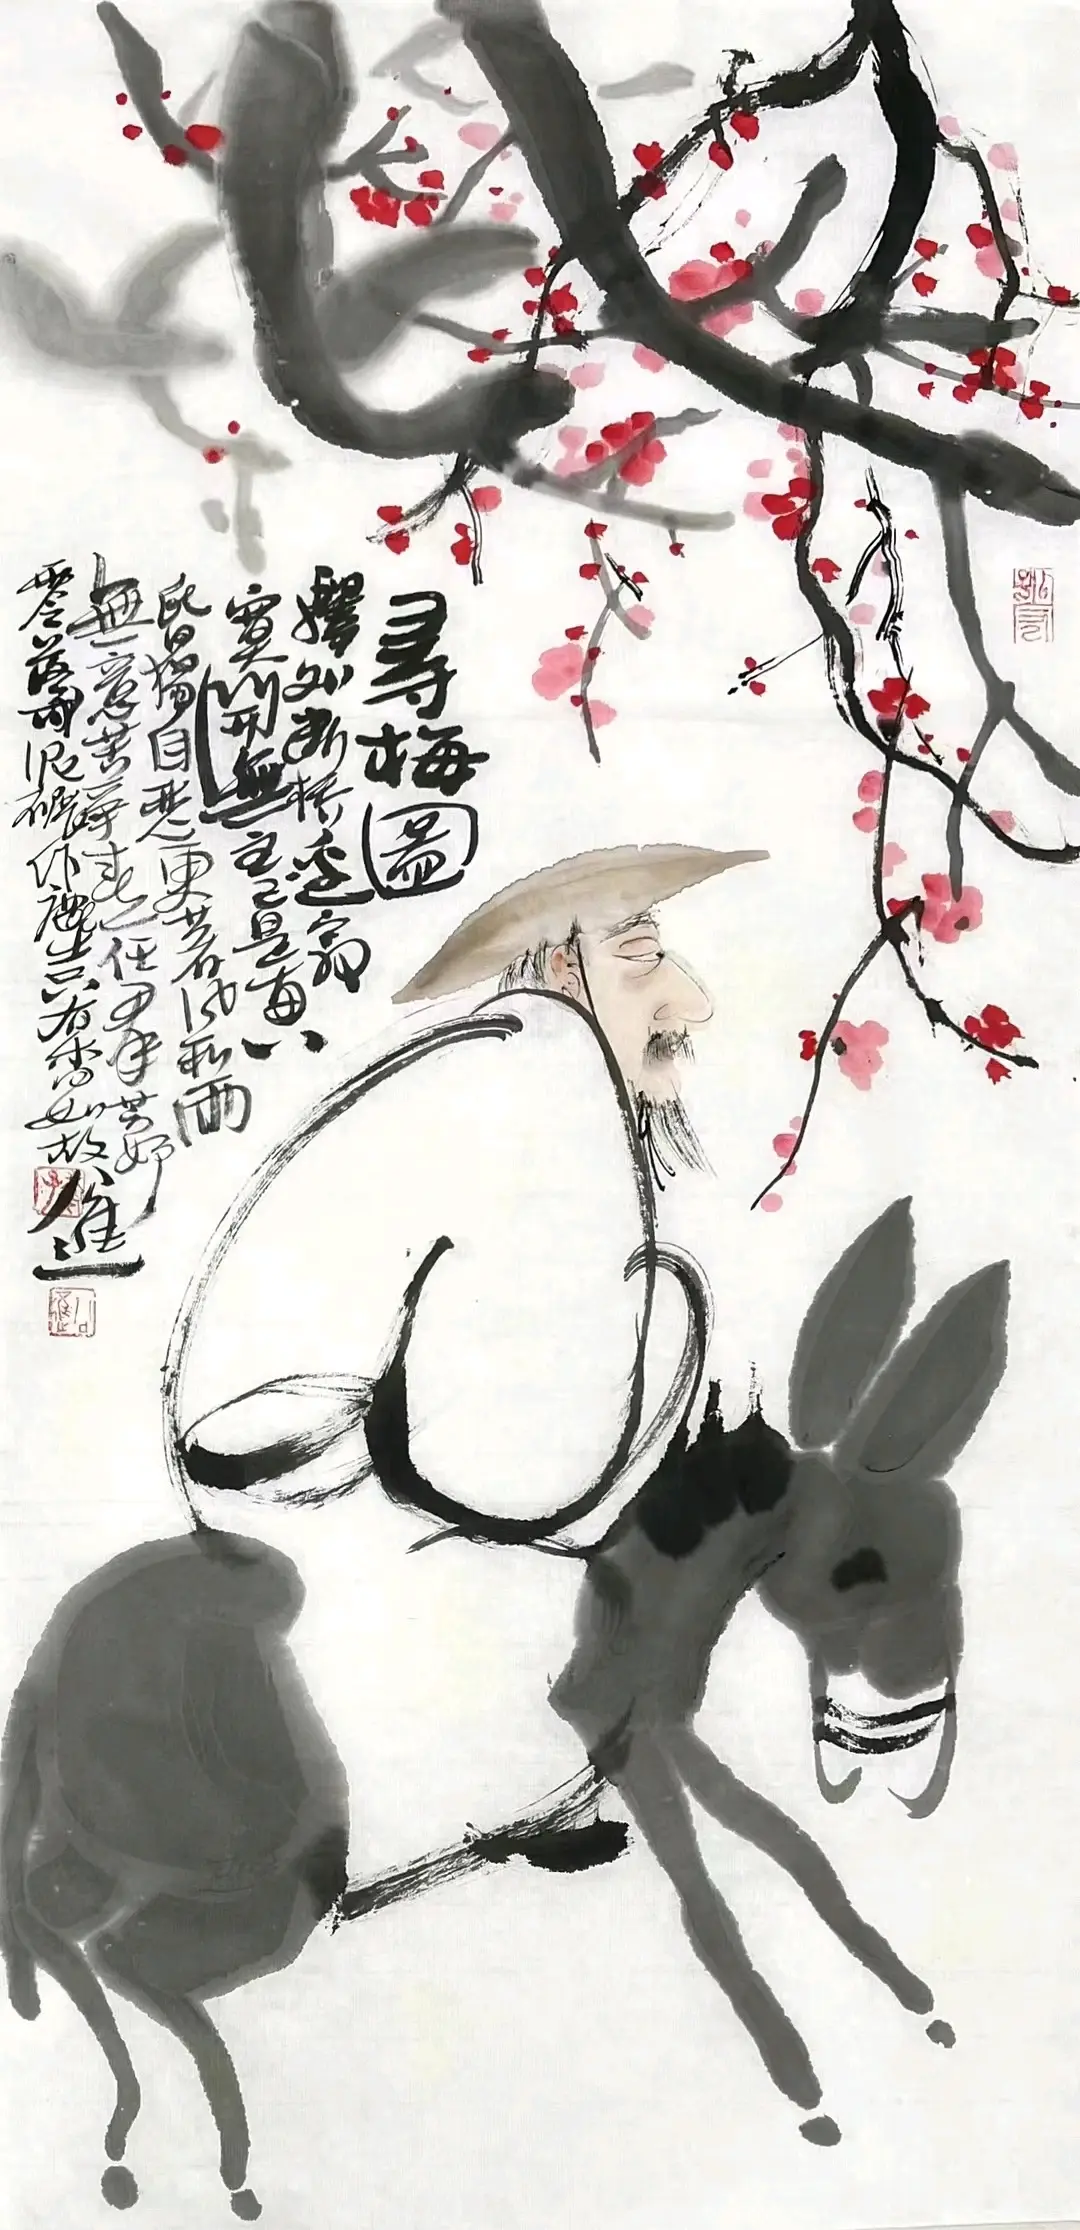 尋梅圖
驛外斷橋邊寂
寞開無主已是黃
昏獨自愁更著風和雨
無意苦爭春一任群芳妒
零落成泥碾作塵只有香如故
進